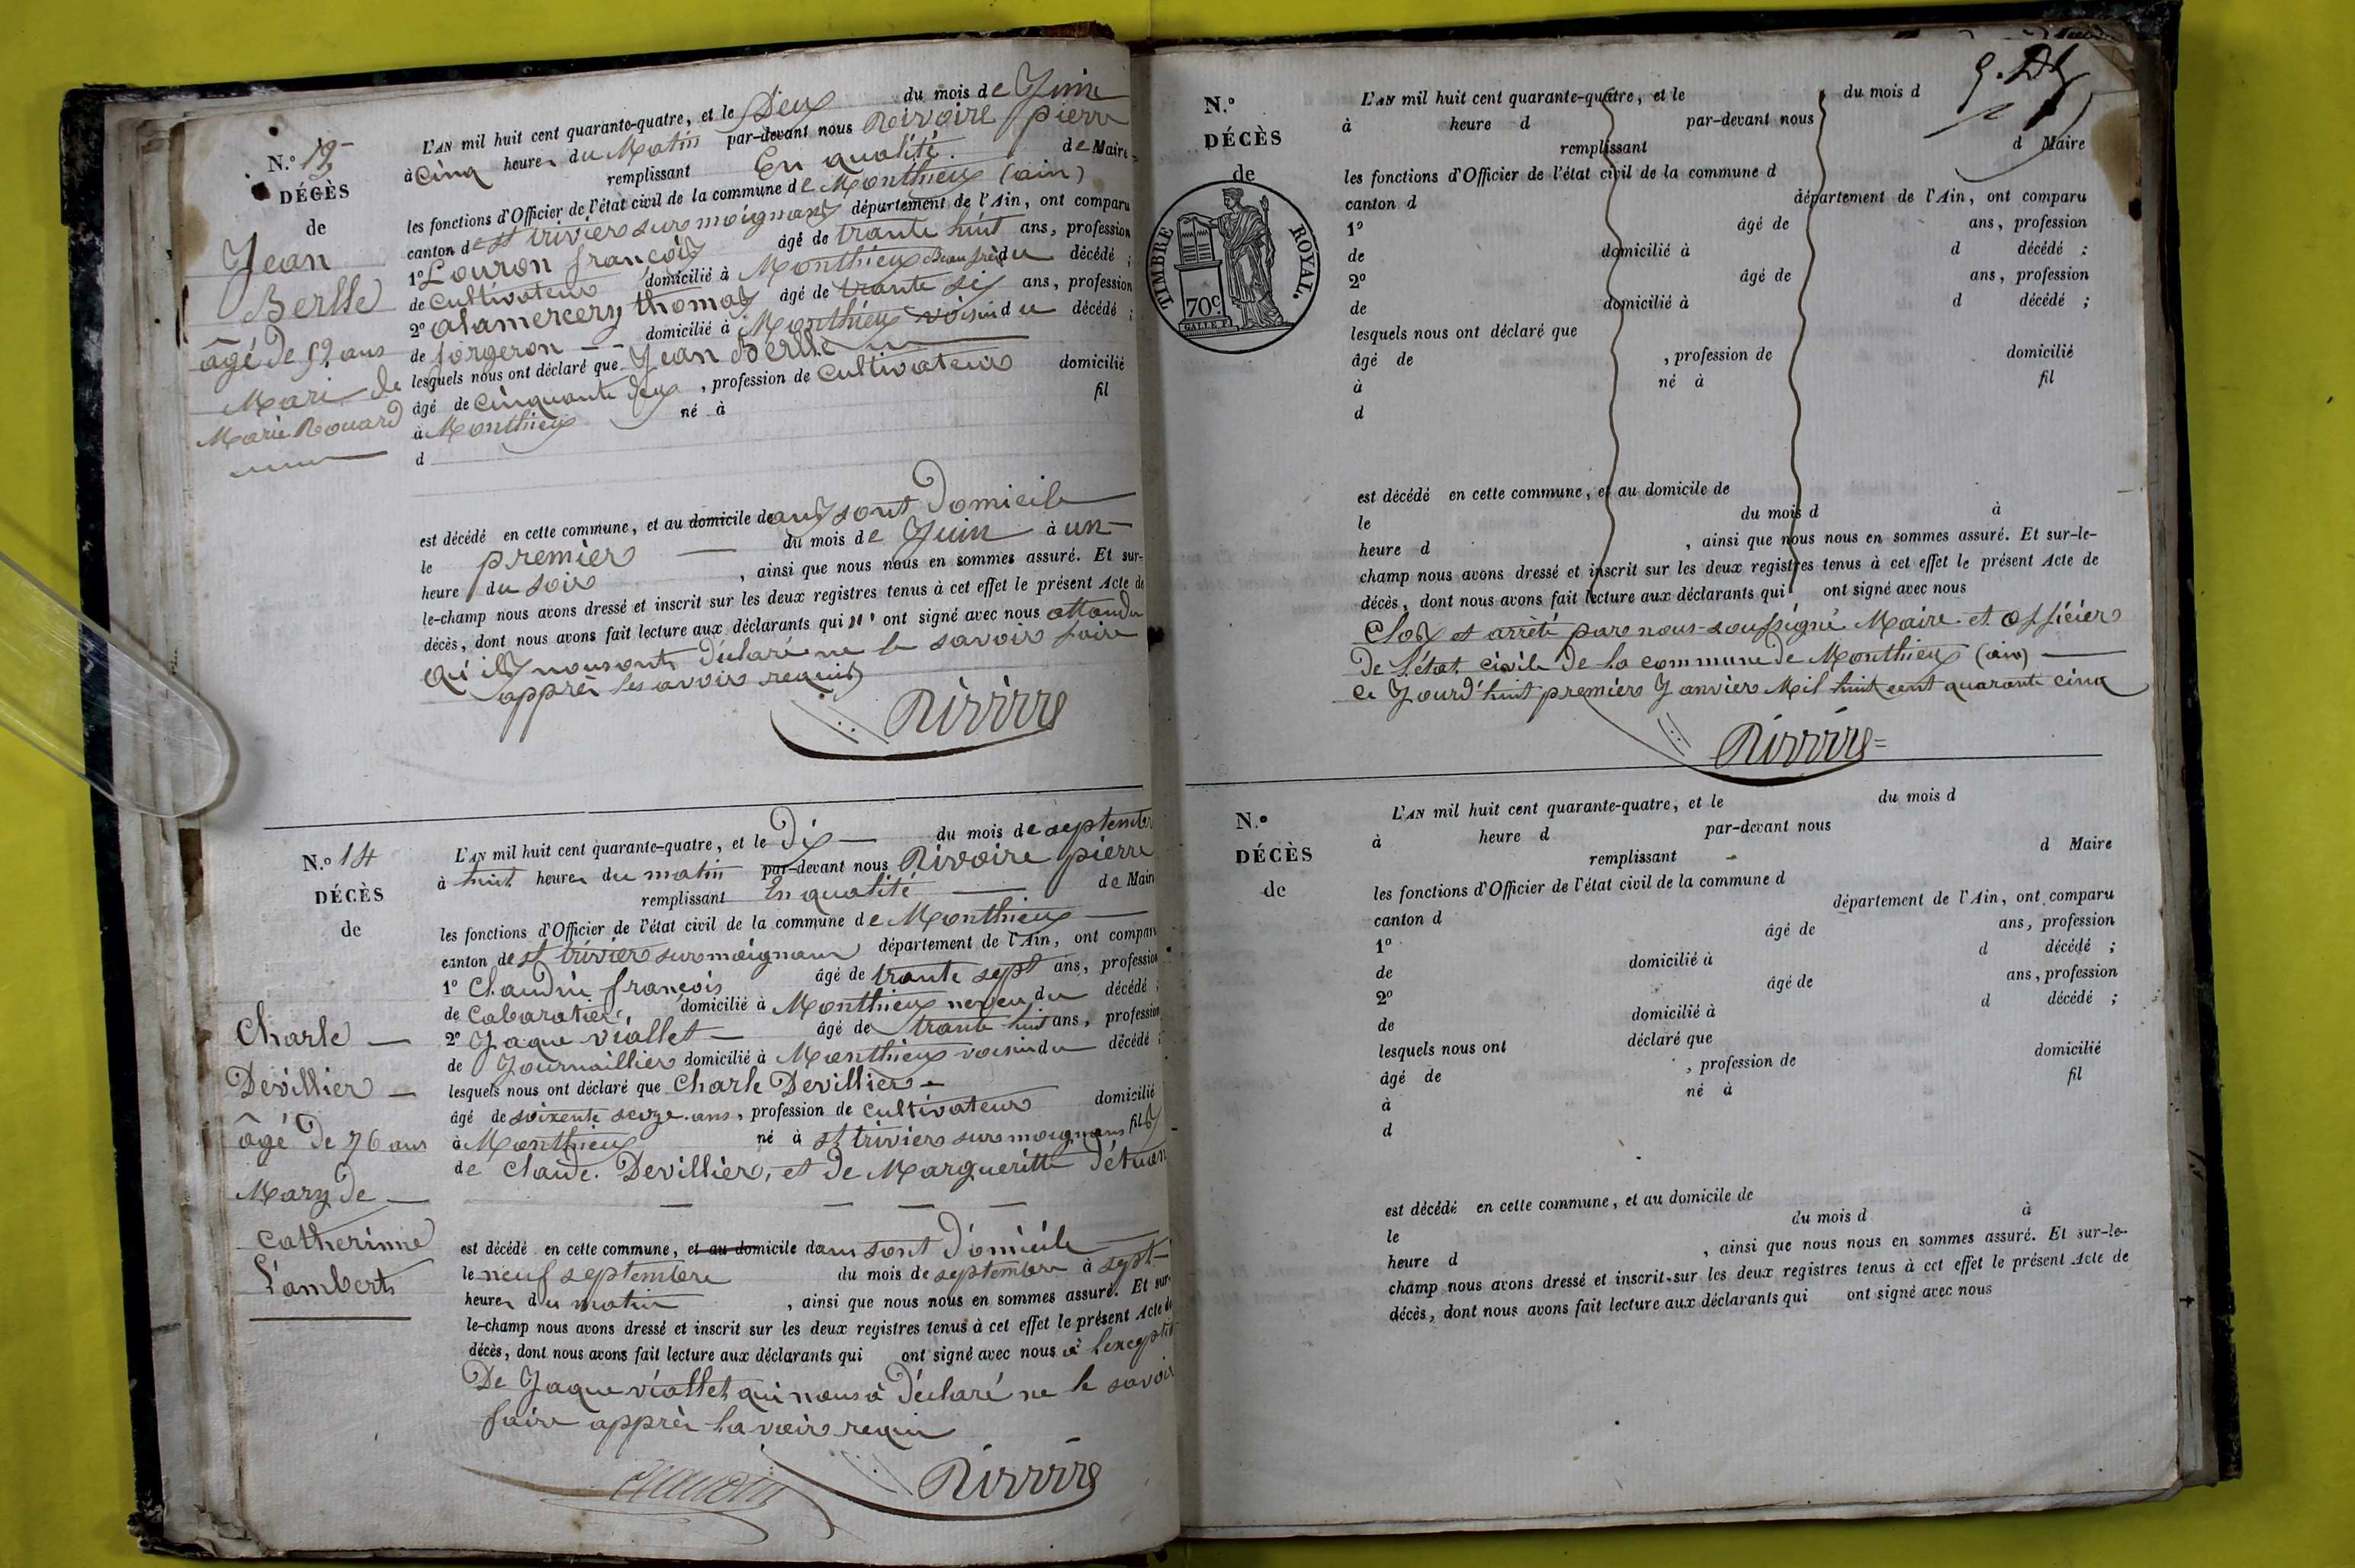 N.° 13
DÉCÈS
de
Jean
Berlle
âgé de 52 ans
Mari de
Marie Rouard
L'AN mil huit cent quarante-quatre, et le Deux du mois de Juin
à cinq heures du Matin par-devant nous Rivoire pierre
remplissant En qualité de Maire
les fonctions d'Officier de l'état civil de la commune de Monthieux (ain)
canton de st triviers sur moignans département de l'Ain, ont comparu
1° Louron françois âgé de trante huit ans, profession
de cultivateur domicilié à Monthieux Beau frè du décédé ;
2° alamercery thomas âgé de trante six ans, profession
de forgeron domicilié à Monthieux voisin du décédé ;
lesquels nous ont déclaré que Jean Berlle
âgé de cinquante deux, profession de cultivateur domicilié
à Monthieux né à fil
d
est décédé en cette commune, et au domicile de dans sont Domicile
le premier du mois de Juin à un
heure du soir, ainsi que nous nous en sommes assuré. Et sur-
le-champ nous avons dressé et inscrit sur les deux registres tenus à cet effet le présent Acte de
décès, dont nous avons fait lecture aux déclarants qui n' ont signé avec nous attandu
qu'ils nous onts déclaré ne le savoir faire
apprès les avoir requis
Rivoire
N.° 14
DÉCÈS
de
Charle
Devillier
âgé de 76 ans
Mary de
Catherinne
Lamberts
L'AN mil huit cent quarante-quatre, et le Dix du mois de septembre
à huit heures du matin par-devant nous Rivoire pierre
remplissant En qualité de Maire
les fonctions d'Officier de l'état civil de la commune de Monthieux
canton de st triviers sur moignans département de l'Ain, ont comparu
1° Chaudin françois âgé de trante sept ans, profession
de Cabaratier domicilié à Monthieux neveu du décédé ;
2° Jaque viallet âgé de trante huit ans, profession
de Journaillier domicilié à Monthieux voisin du décédé ;
lesquels nous ont déclaré que Charle Devillier
âgé de soixente seize ans, profession de cultivateur domicilié
à Monthieux né à st triviers sur moignans fils
de Claude Devillier, et de Margueritte
est décédé en cette commune, et au domicile dans sont Domicile
le neuf septembre du mois de septembre à sept
heures du matin, ainsi que nous nous en sommes assuré. Et sur-
le-champ nous avons dressé et inscrit sur les deux registres tenus à cet effet le présent Acte de
décès, dont nous avons fait lecture aux déclarants qui ont signé avec nous à lexceptio
De Jaque viallet qui nous à déclaré ne le savoir
faire apprès lavoir requi
Chaudin Rivoire
N.°
DÉCÈS
de
TIMBRE ROYAL.
70c.
L'AN mil huit cent quarante-quatre, et le du mois d
à heure d par-devant nous
remplissant d Maire
les fonctions d'Officier de l'état civil de la commune d
canton d département de l'Ain, ont comparu
1° âgé de ans, profession
de domicilié à d décédé ;
2° âgé de ans, profession
de domicilié à d décédé ;
lesquels nous ont déclaré que
âgé de , profession de domicilié
à né à fil
d
est décédé en cette commune, et au domicile de
le du mois d à
heure d , ainsi que nous nous en sommes assuré. Et sur-le-
champ nous avons dressé et inscrit sur les deux registres tenus à cet effet le présent Acte de
décès, dont nous avons fait lecture aux déclarants qui ont signé avec nous
Clos et arrèté par nous soussigné Maire et officier
De l'état civile de la commune de Monthieux (ain)
ce Jourd'huit premier Janvier Mil huit cent quarante cinq
Rivoire
N.°
DÉCÈS
de
L'AN mil huit cent quarante-quatre, et le du mois d
à heure d par-devant nous
remplissant d Maire
les fonctions d'Officier de l'état civil de la commune d
canton d département de l'Ain, ont comparu
1° âgé de ans, profession
de domicilié à d décédé ;
2° âgé de ans, profession
de domicilié à d décédé ;
lesquels nous ont déclaré que
âgé de , profession de domicilié
à né à fil
d
est décédé en cette commune, et au domicile de
le du mois d à
heure d , ainsi que nous nous en sommes assuré. Et sur-le-
champ nous avons dressé et inscrit sur les deux registres tenus à cet effet le présent Acte de
décès, dont nous avons fait lecture aux déclarants qui ont signé avec nous